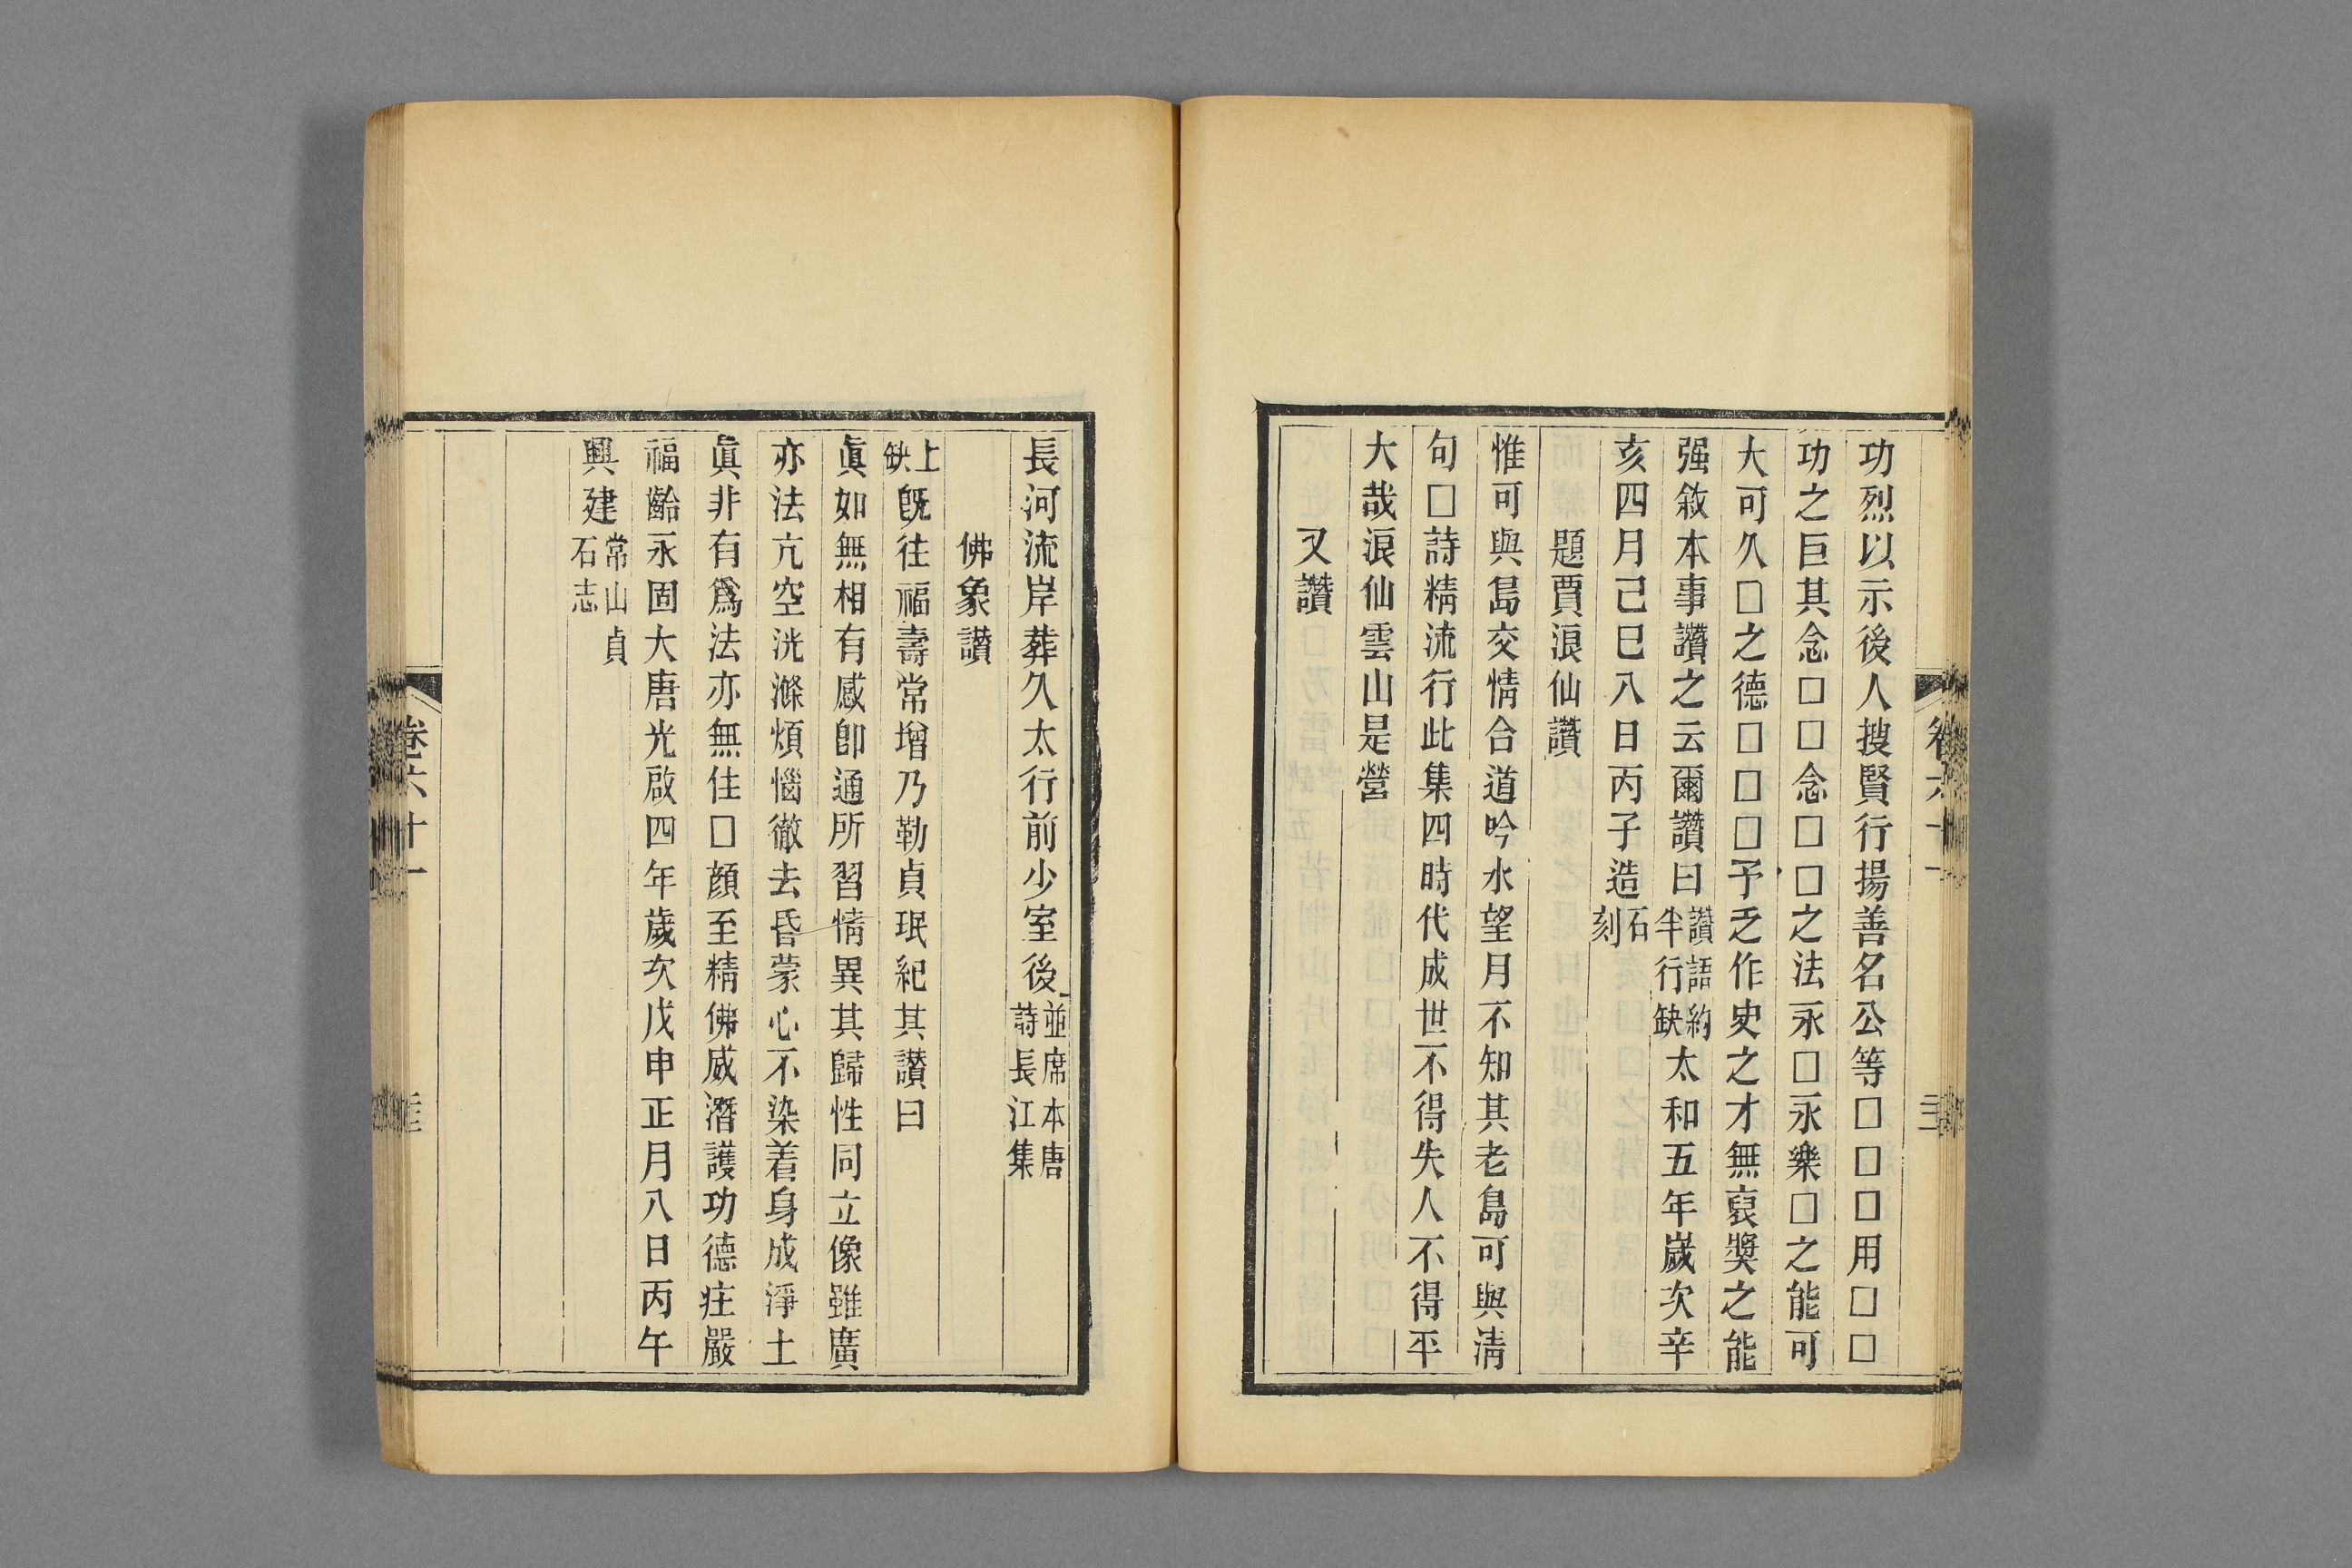 功烈以示後人搜賢行揚善名公等□□□用□□
功之巨其念□□念□□之法永□永樂□之能可
大可久□之德□□□予乏作史之才無裒奬之能
强敘本事讚之云爾讚曰讚語約半行缺太和五年嵗次辛
亥四月己巳八日丙子造石刻
題賈浪仙讚
惟可與島交情合道吟水望月不知其老島可與清
句□詩精流行此集四時代成世不得失人不得平
大哉浪仙雲山是營
又讚
長河流岸葬久太行前少室後並席本唐詩長江集
佛象讃
上缺旣往福壽常增乃勒貞珉紀其讃曰
眞如無相有感卽通所習情異其歸性同立像雖廣
亦法亢空洸滌煩惱徹去昏蒙心不染着身成淨土
眞非有爲法亦無住□顔至精佛威潛護功德庄嚴
福齡永固大唐光啟四年歲次戊申正月八日丙午
興建常山貞石志
卷六十一